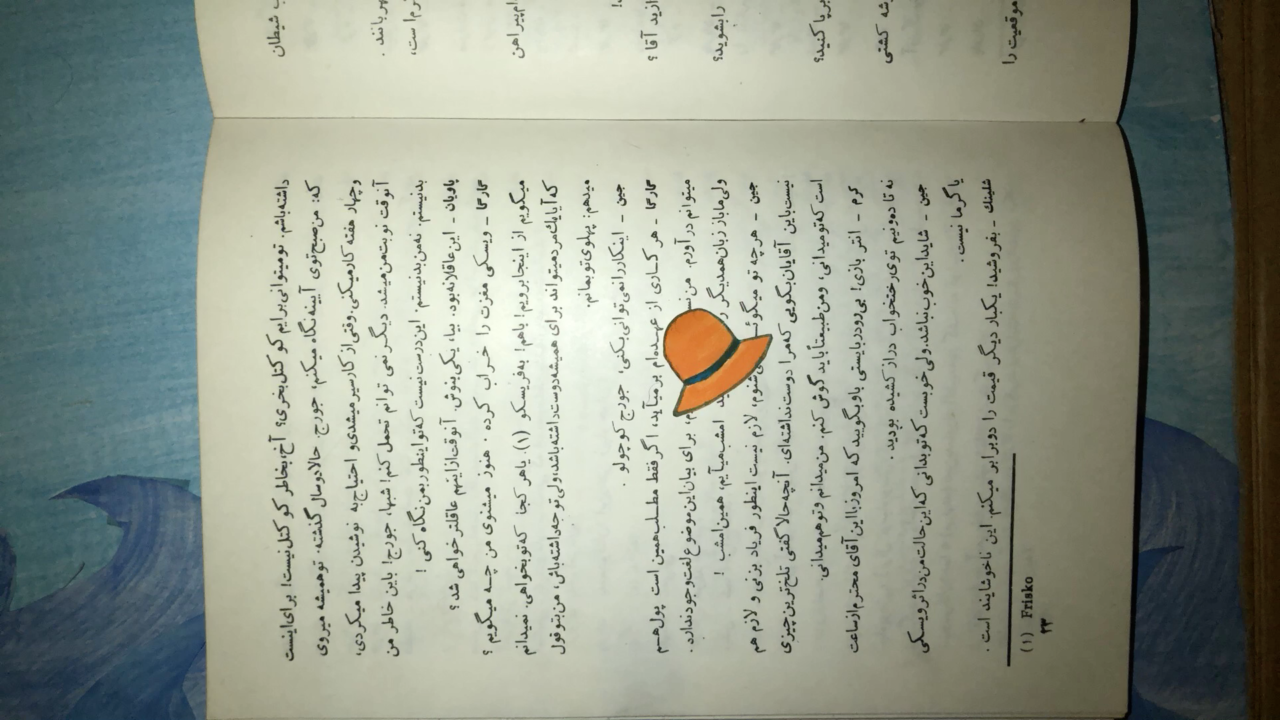 شیطان
.
است،
ام پیراهن
!
ازید آقا ؟
را بشوید؟
برپا کنید؟
شه کشتی
موقعیت را
داشته باشم. تو میتوانی برایم کوکتل بخری؟ آخ، بخاطر کوکتل نیست! برای اینست
که: من صبح توی آیینه نگاه میکنم، جورج. حالا دو سال گذشته. تو همیشه میروی
و چهار هفته کار میکنی. وقتی از کار سیر میشدی و احتیاج به نوشیدن پیدا میکردی،
آنوقت نوبت من میشد. دیگر نمی توانم تحمل کنم! شبها، جورج! باین خاطر من
بد نیستم. نه من بد نیستم. این درست نیست که تو اینطور بمن نگاه کنی !
بابویان - این عاقلانه بود. بیا، یکی بنوش. آنوقت از اینهم عاقلتر خواهی شد ؟
گارگا - ویسکی مغزت را خراب کرده . هنوز میشنوی من چه میگویم ؟
میگویم از اینجا برویم! باهم! به فریسکو (۱). یا هر کجا که تو بخواهی. نمیدانم
که آیا یک مرد میتواند برای همیشه دوست داشته باشد، ولی توجه داشته باش، من بتو قول
میدهم: پهلوی تو بمانم.
جین - اینکار را نمی توانی بکنی، جورج کوچولو .
گارگا - هر کاری از عهده ام برمیآید، اگر فقط مطلب همین است پول هم
میتوانم درآورم. من برای بیان این موضوع لغت وجود ندارد.
ولی ما باز زبان همدیگر امشب میآیم، همین امشب !
جین - هر چه تو میگوئی شنوم، لازم نیست اینطور فریاد بزنی و لازم هم
نیست باین آقایان بگویی که مرا دوست نداشته ای. آنچه حالا گفتی تلخ ترین چیزی
است که تو میدانی، و من طبیعتاً باید گوش کنم. من میدانم و تو هم میدانی.
کرم - انتر بازی! بی رودربایستی باو بگویید که امروز با این آقای محترم از ساعت
نه تا ده و نیم توی رختخواب دراز کشیده بودید .
جین - شاید این خوب نباشد. ولی خوبست که تو بدانی که این حالت من در اثر ویسکی
یا گرما نیست .
شلینک - بفروشید! یکبار دیگر قیمت را دو برابر میکنم. این ناخوشایند است .
(۱) Frisko
۲۳